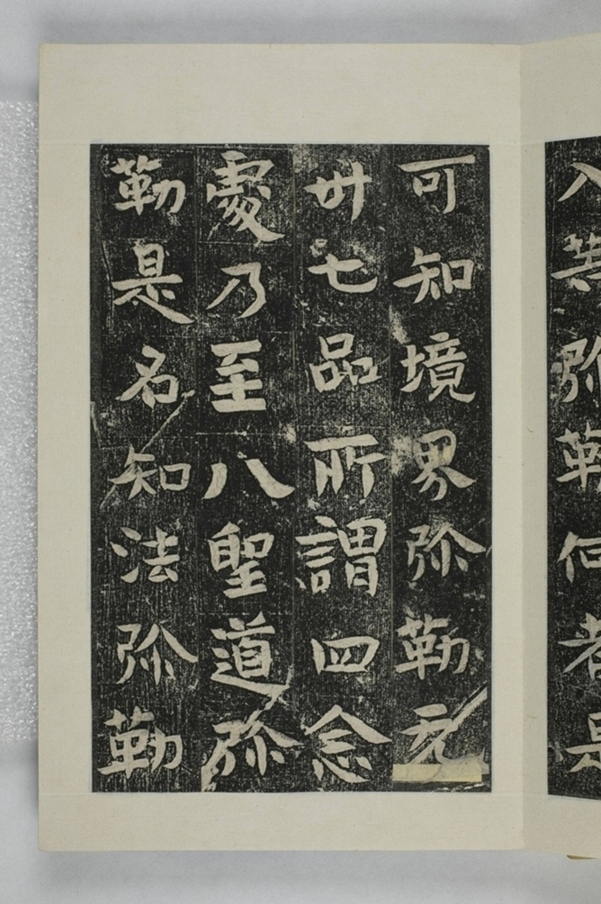 弥勒何者是
可知境界弥勒
卅七品所謂四念
處乃至八聖道弥
勒是名知法弥勒